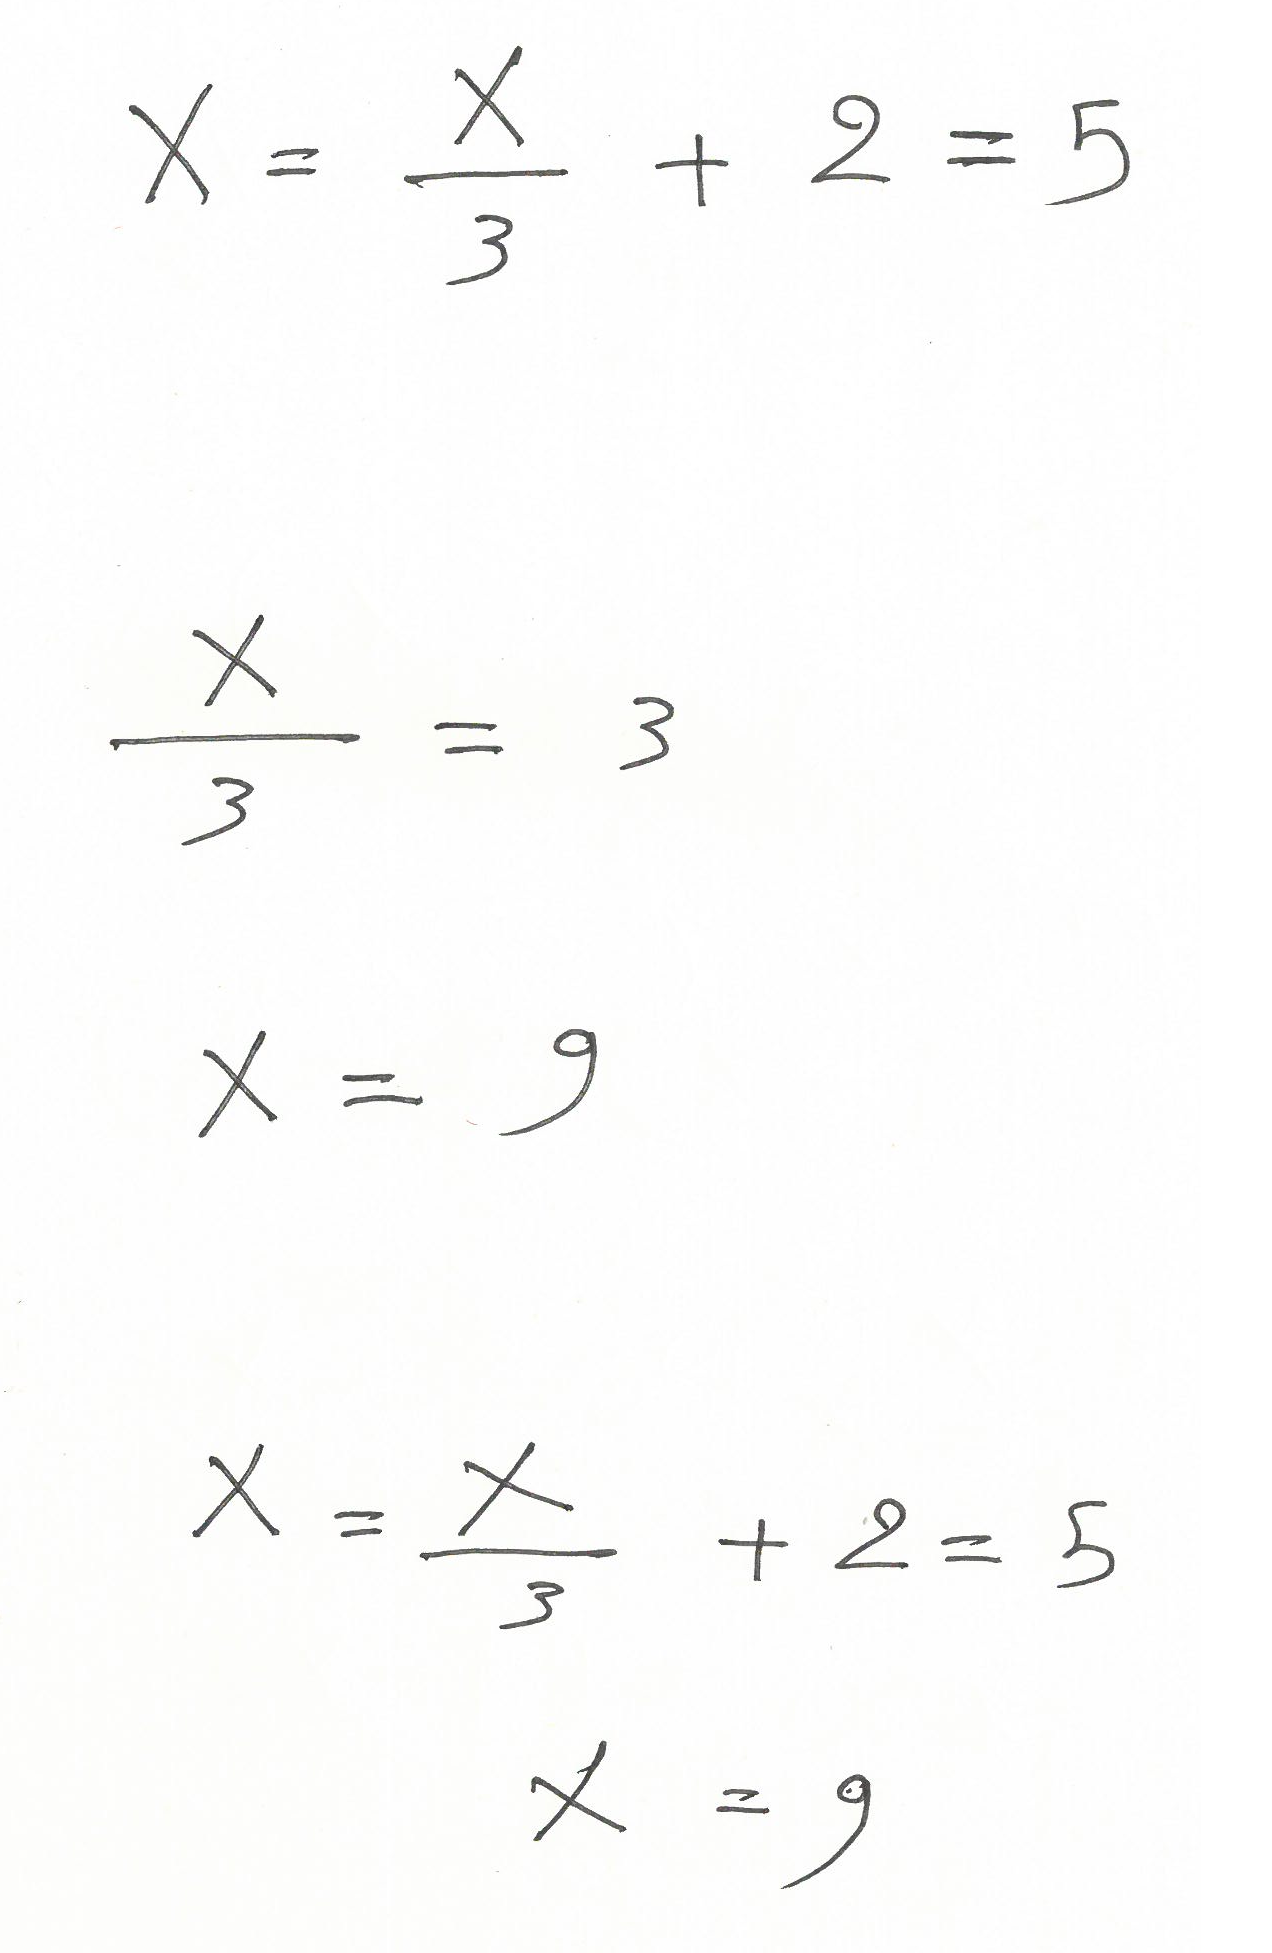 X = X/3 + 2 = 5
X/3 = 3
X = 9
X = X/3 + 2 = 5
X = 9